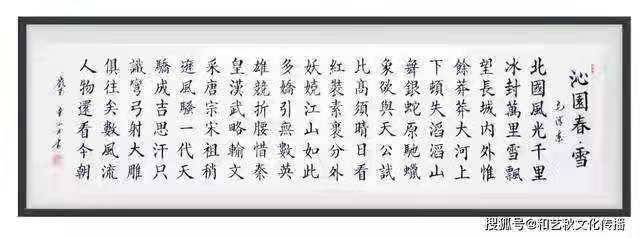 沁園春·雪
毛澤東
北國風光千里
冰封萬里雪飄
望長城内外惟
餘莽莽大河上
下頓失滔滔山
舞銀蛇原馳蠟
象欲與天公試
比高須晴日看
紅裝素裹分外
妖嬈江山如此
多嬌引無數英
雄競折腰惜秦
皇漢武略輸文
采唐宗宋祖稍
遜風騷一代天
驕成吉思汗只
識彎弓射大雕
俱往矣數風流
人物還看今朝
搜狐号@和艺秋文化传播